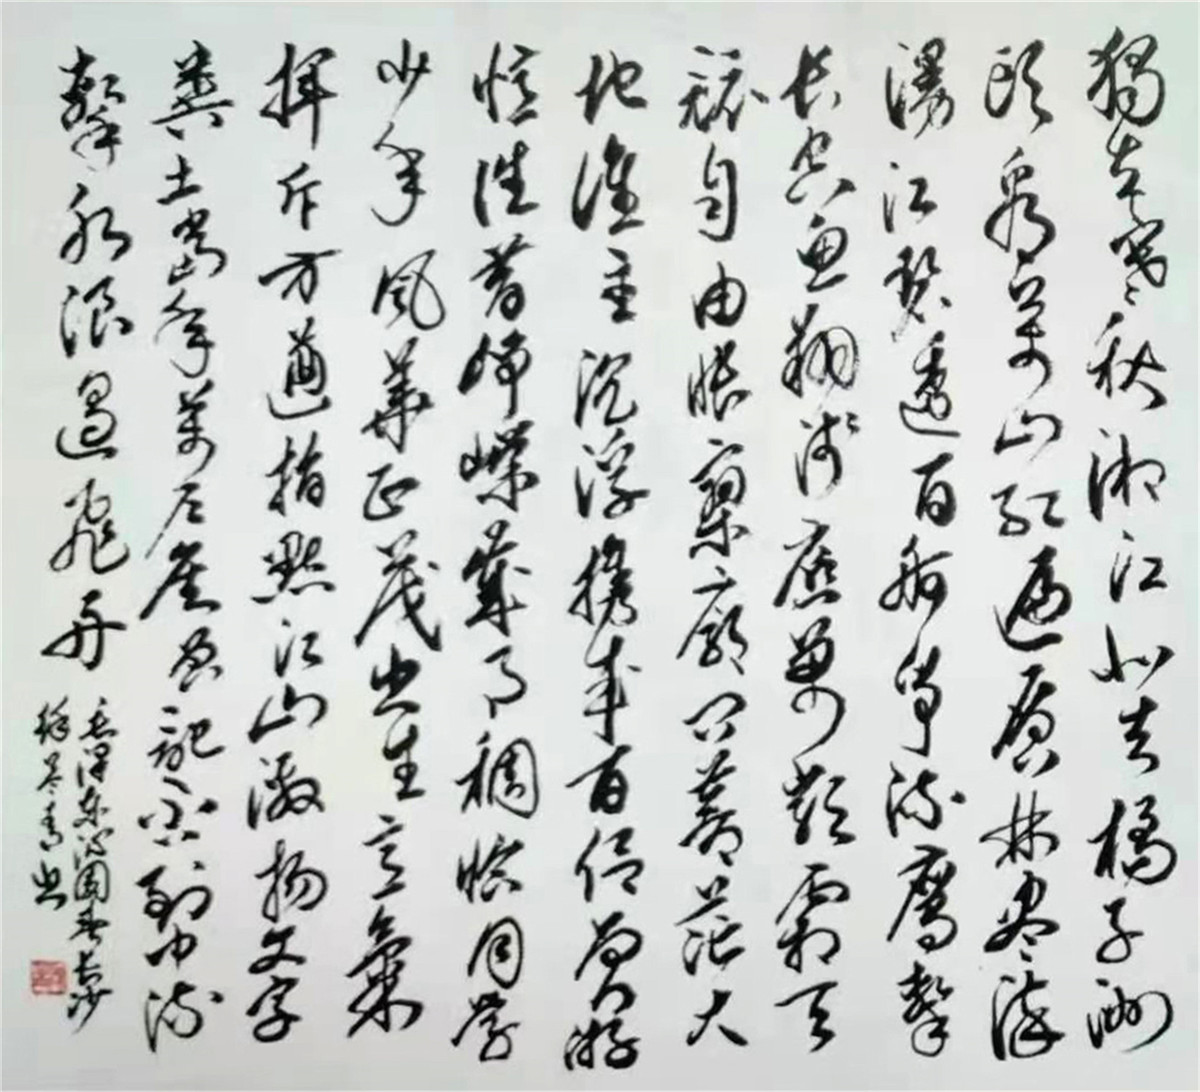 獨立寒秋湘江北去橘子洲
頭看萬山紅遍層林尽染
漫江碧透百舸爭流鷹擊
長空魚翔淺底萬類霜天
競自由悵寥廓问蒼茫大
地誰主沉浮攜來百侣曾游
憶往昔崢嶸歲月稠恰同學
少年風華正茂书生意氣
揮斥方遒指點江山激揚文字
糞土當年萬戶侯曾記否到中流
擊水浪遏飛舟
毛澤东沁園春長沙
徐书